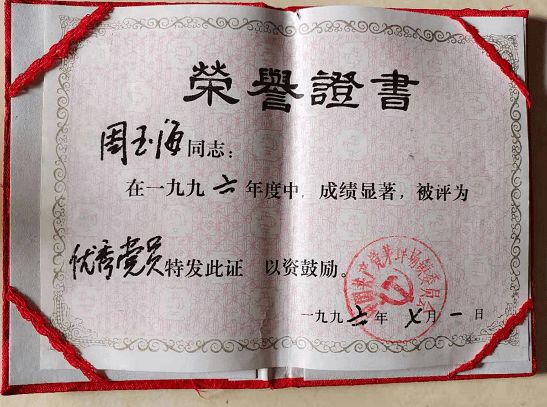 榮譽證書
周玉海同志：
在一九九六年度中，成绩显著，被评为
优秀党员特发此证 以资鼓励。
一九九六年 七月一日